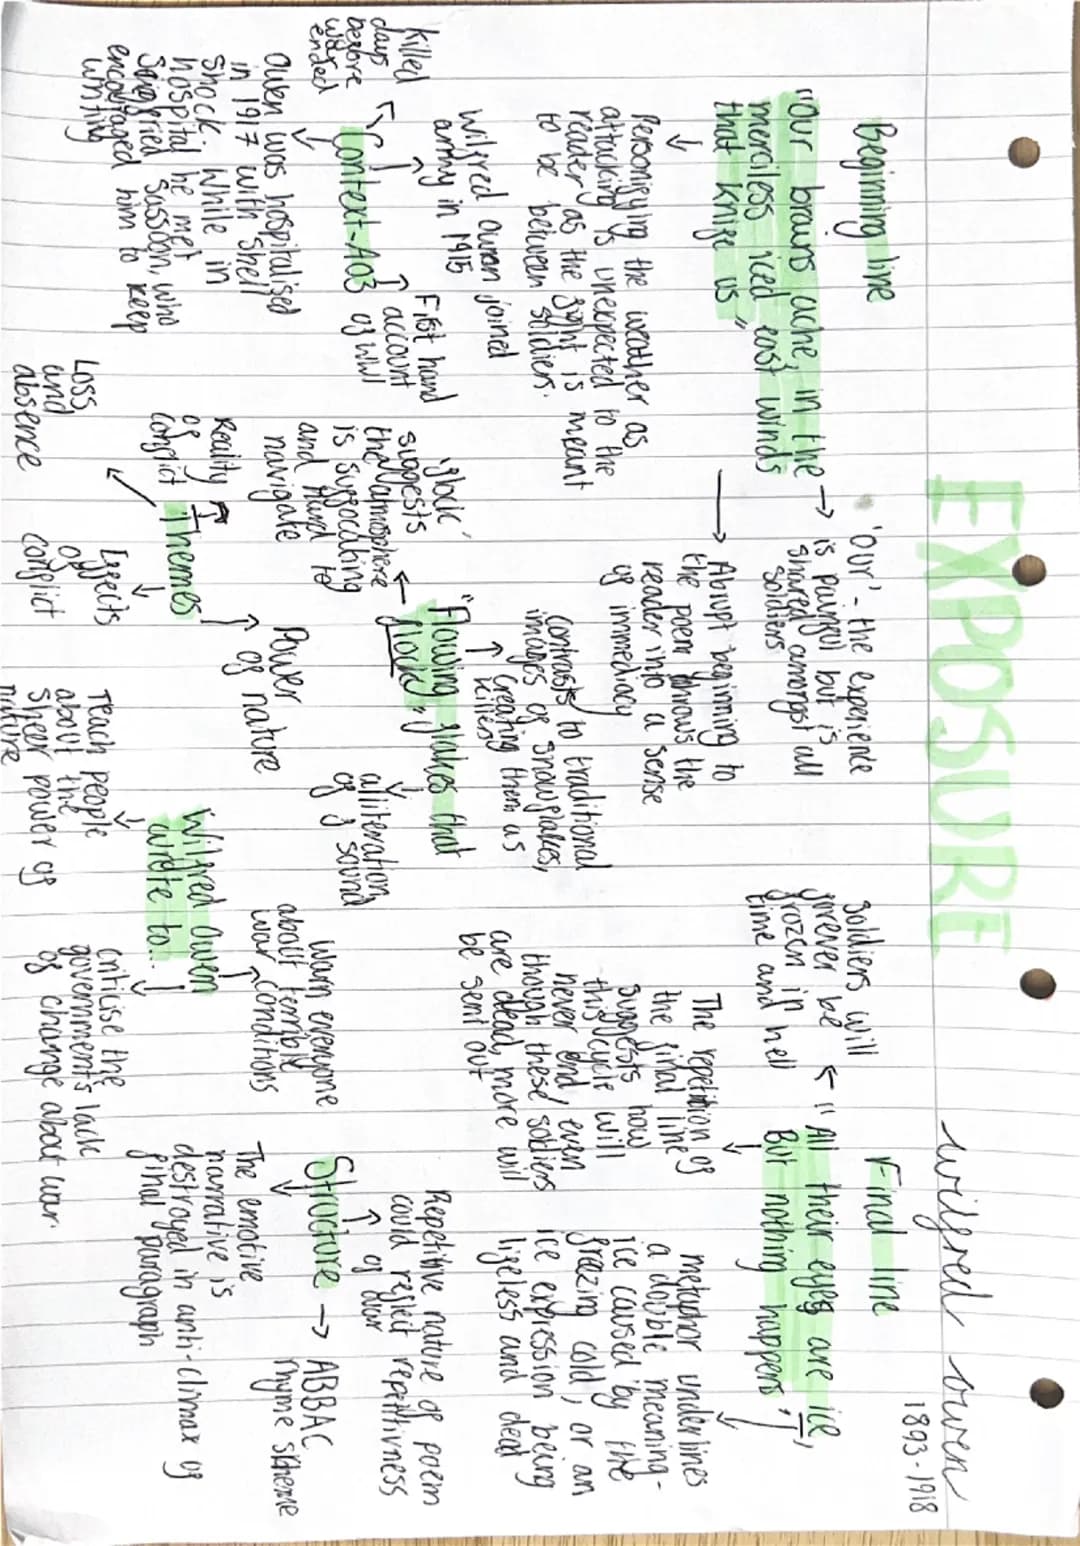 EXPOSURE
Wilfred Owen
1893-1918
Beginning line
"Our brains ache, in the
merciless iced east winds
that knife us"
→ 'Our' - the experience
is painful but is
shared amongst all
soldiers
→ Abrupt beginning to
the poem throws the
reader into a sense
of immediacy
Personifying the weather as
attacking is unexpected to the
reader as the fight is meant
to be between soldiers.
Context-A03
Wilfred Owen joined
army in 1915
First hand
account
of WWI
killed
days
before
war
ended
Owen was hospitalised
in 1917 with shell
shock. While in
hospital he met
Seigfried Sassoon, who
encouraged him to keep
writing
"Flowing flakes that
flock"
contrasts to traditional
images of snowflakes,
creating them as
killers
'flock'
suggests
the atmosphere
is suffocating
and hard to
navigate
alliteration
of f sound
Themes
Reality
of
conflict
Loss
and
absence
Effects
of
conflict
Power
of nature
Wilfred Owen
wrote to...
Teach people
about the
sheer power of
nature
warn everyone
about terrible
war conditions
criticise the
government's lack
of change about war.
Final line
"All their eyes are ice,
But nothing happens."
soldiers will
forever be
frozen in
time and hell
The repetition of
the final line
suggests how
this cycle will
never end, even
though these soldiers
are dead, more will
be sent out
metaphor underlines
a double meaning -
ice caused by the
frezing cold, or an
ice expression being
lifeless and dead
Structure → ABBAC
rhyme scheme
Repetitive nature of poem
could reflect repetitivness
of war
The emotive
narrative is
destroyed in anti-climax of
final paragraph